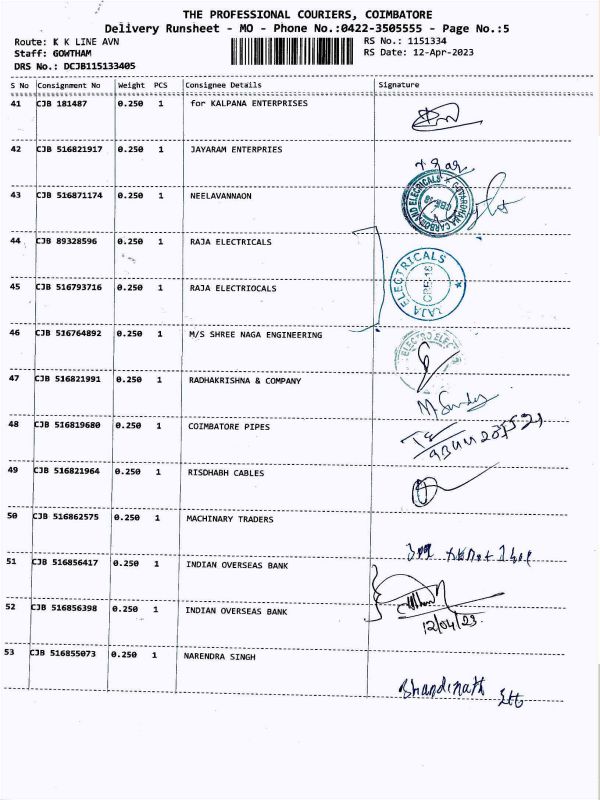 THE PROFESSIONAL COURIERS, COIMBATORE
Delivery Runsheet - MO - Phone No.:0422-3505555 - Page No.:5
Route: K K LINE AVN RS No.: 1151334
Staff: GOWTHAM RS Date: 12-Apr-2023
DRS No.: DCJB115133405
S No Consignment No Weight PCS Consignee Details Signature
41 CJB 181487 0.250 1 for KALPANA ENTERPRISES
42 CJB 516821917 0.250 1 JAYARAM ENTERPRIES
43 CJB 516871174 0.250 1 NEELAVANNAON
44 CJB 89328596 0.250 1 RAJA ELECTRICALS
RAJA ELECTRICALS
CBE-18
45 CJB 516793716 0.250 1 RAJA ELECTRIOCALS
46 CJB 516764892 0.250 1 M/S SHREE NAGA ENGINEERING
47 CJB 516821991 0.250 1 RADHAKRISHNA & COMPANY
48 CJB 516819680 0.250 1 COIMBATORE PIPES
49 CJB 516821964 0.250 1 RISDHABH CABLES
50 CJB 516862575 0.250 1 MACHINARY TRADERS
51 CJB 516856417 0.250 1 INDIAN OVERSEAS BANK
52 CJB 516856398 0.250 1 INDIAN OVERSEAS BANK
12/04/23
53 CJB 516855073 0.250 1 NARENDRA SINGH
Bhandinath